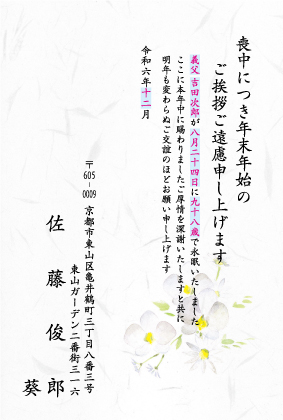 喪中につき年末年始の
ご挨拶ご遠慮申し上げます
義父 吉田次郎が八月二十四日に九十八歳で永眠いたしました
ここに本年中に賜わりましたご厚情を深謝いたしますと共に
明年も変わらぬご交誼のほどお願い申し上げます
令和六年十二月
〒605-0009 京都市東山区亀井鶴町三丁目八番三号
東山ガーデン二番街三一六
佐藤俊郎
葵